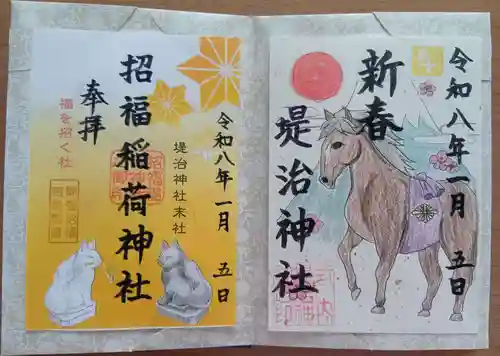 令和八年一月 五日
新春
堤治神社
令和八年一月 五日
堤治神社末社
招福稲荷神社
奉拝
福を招く社